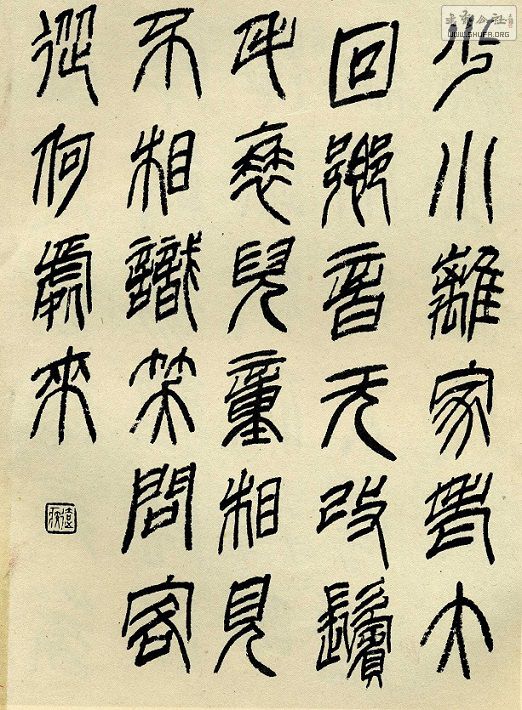 少小離家老大
回鄉音无改鬢
毛衰兒童相見
不相識笑問客
從何處來
WWW.SHUFA.ORG